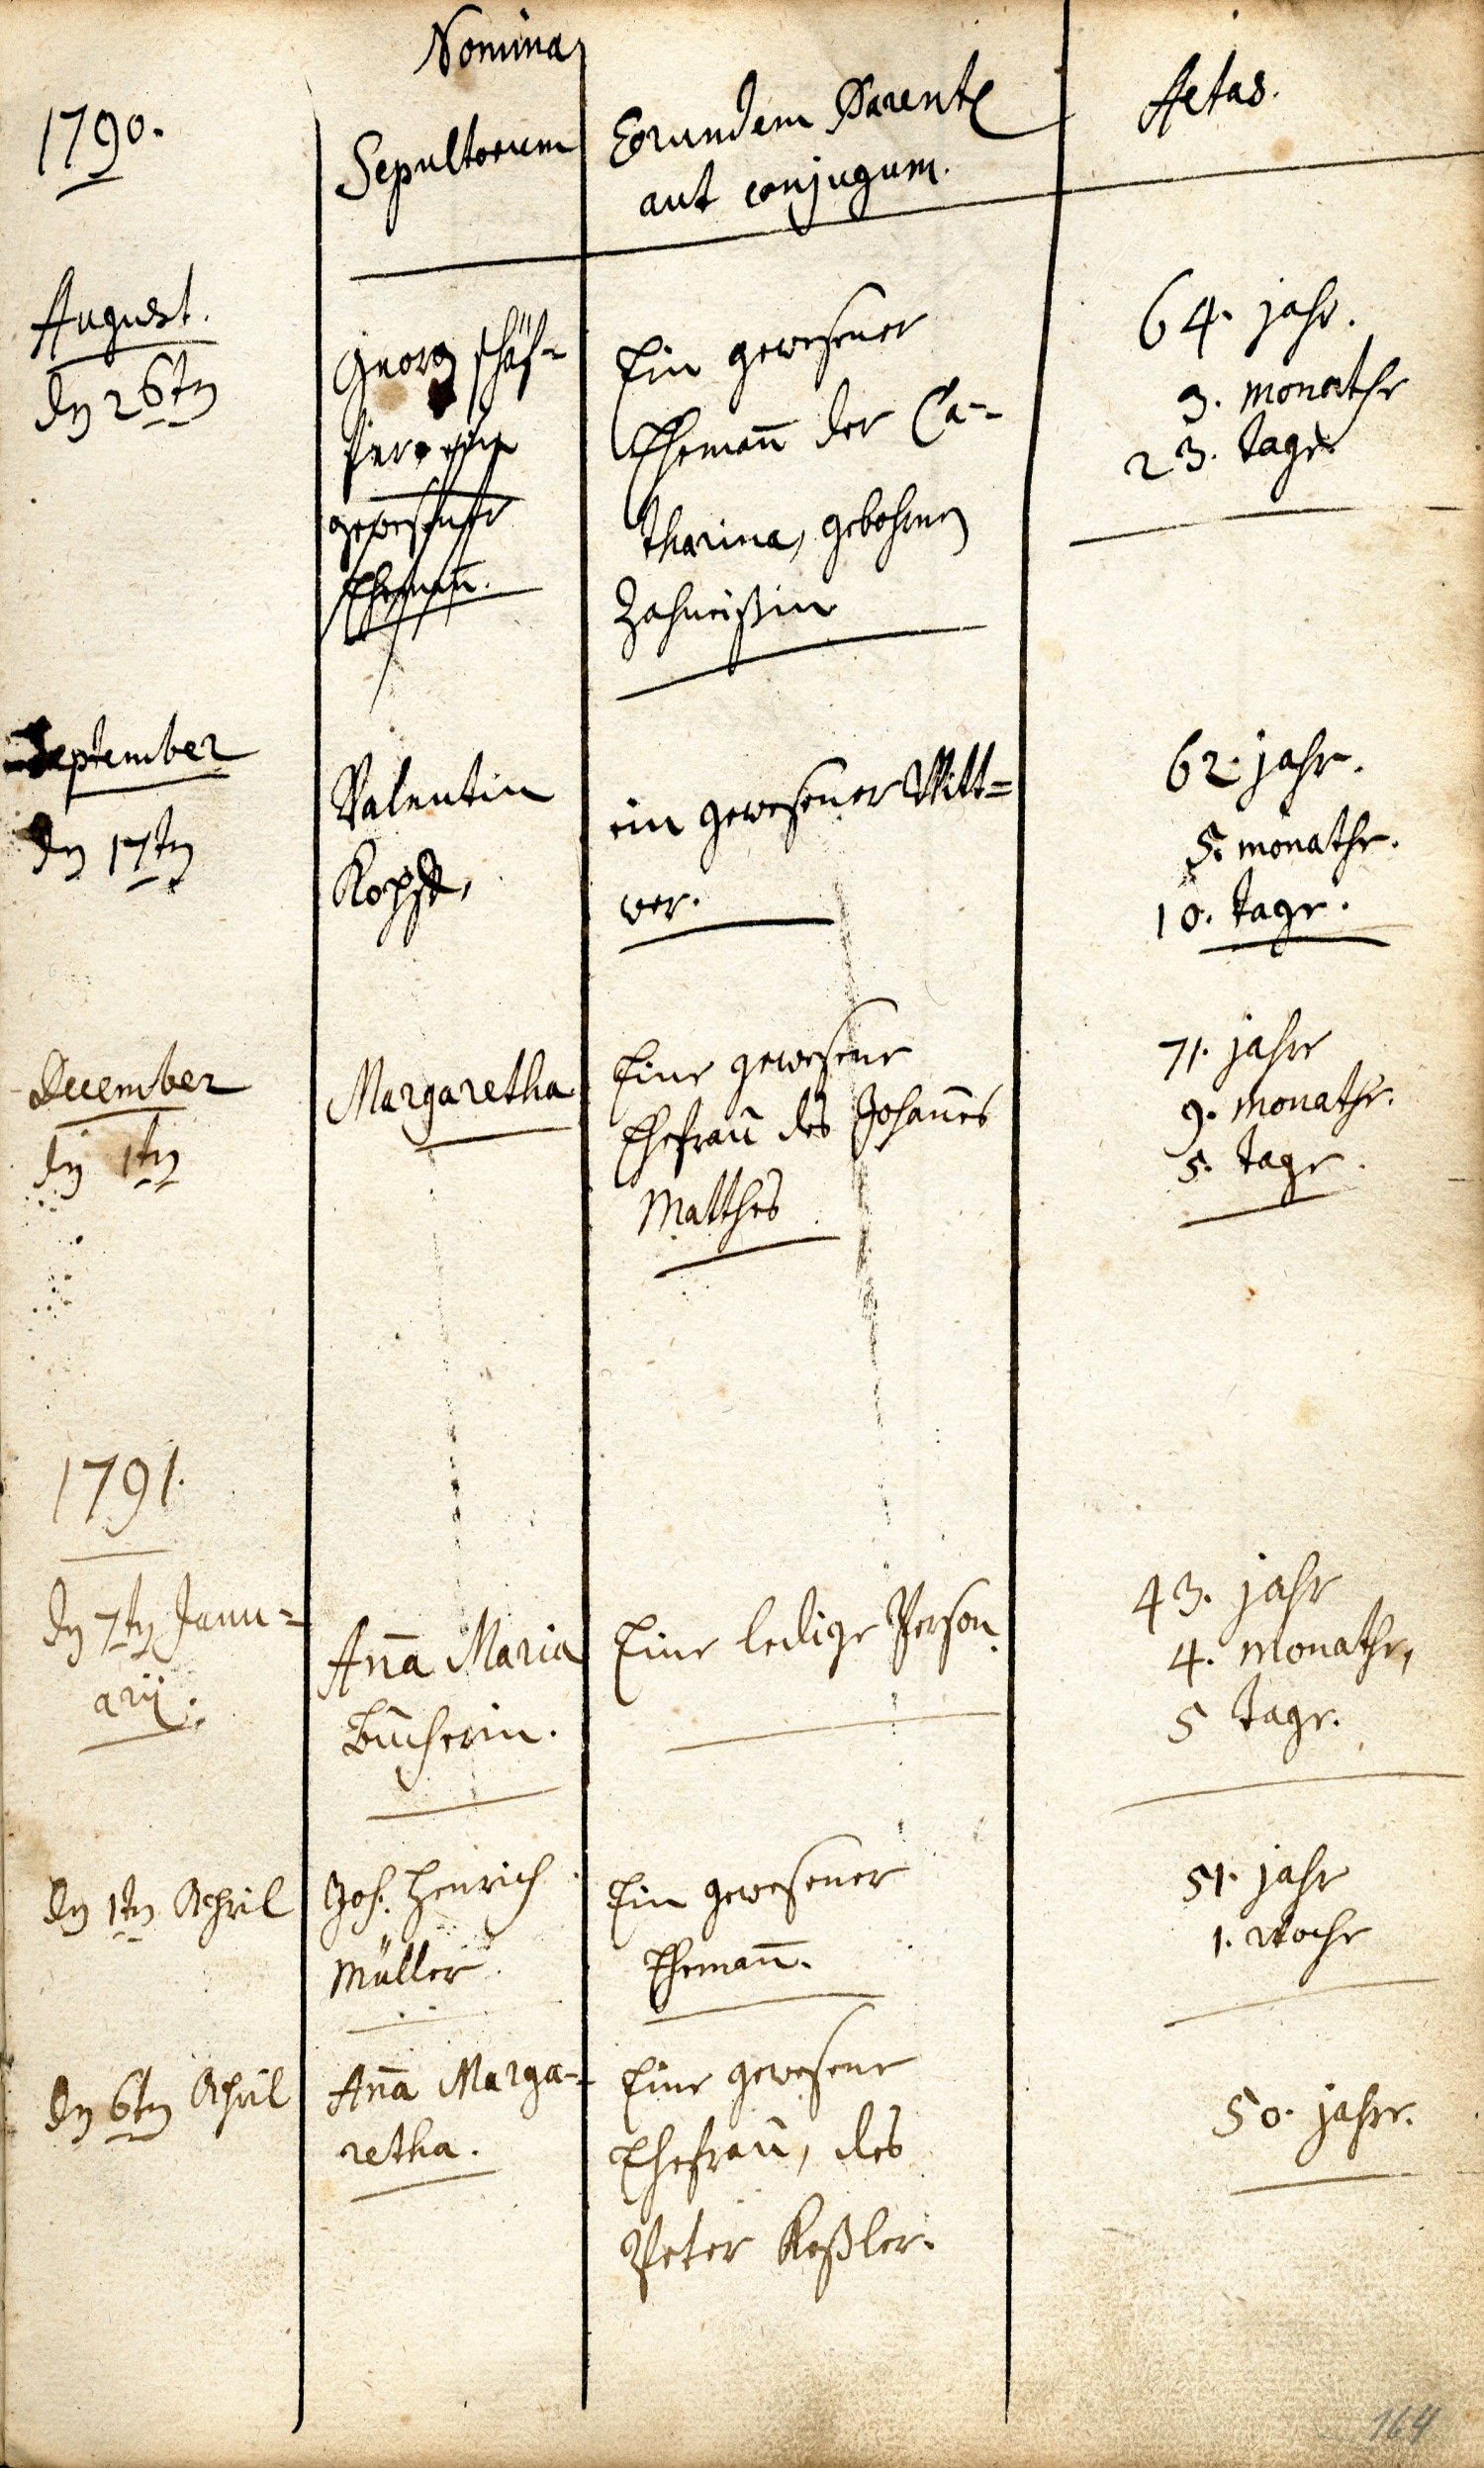 Nomina
1790.
Sepultorum
Eorundem Parent
aut conjugum.
Aetas.
August.
den 26ten
Georg Schäf-
fer ein
gewesener
Ehemañ.
Ein gewesener
Ehemañ der Ca-
tharina, gebohrnen
Zahneißin
64. jahr.
3. monathe
23. tage
September
den 17ten
Valentin
Kopp,
ein gewesener Witt=
wer.
62. jahr.
5. monathe.
10. tage.
December
den 1ten
Margaretha
Eine gewesene
Ehefrau des Johañes
Matthes
71. jahr
9. monathe.
5. tage.
1791.
den 7ten Janu=
arij.
Aña Maria
Bücherin.
Eine ledige Person.
43. jahr
4. monathe,
5 tage.
den 1ten April
Joh. Henrich
Müller.
Ein gewesener
Ehemañ.
51. jahr
1. woche
den 6ten April
Aña Marga-
retha.
Eine gewesene
Ehefrau, des
Peter Keßler.
50. jahr.
164